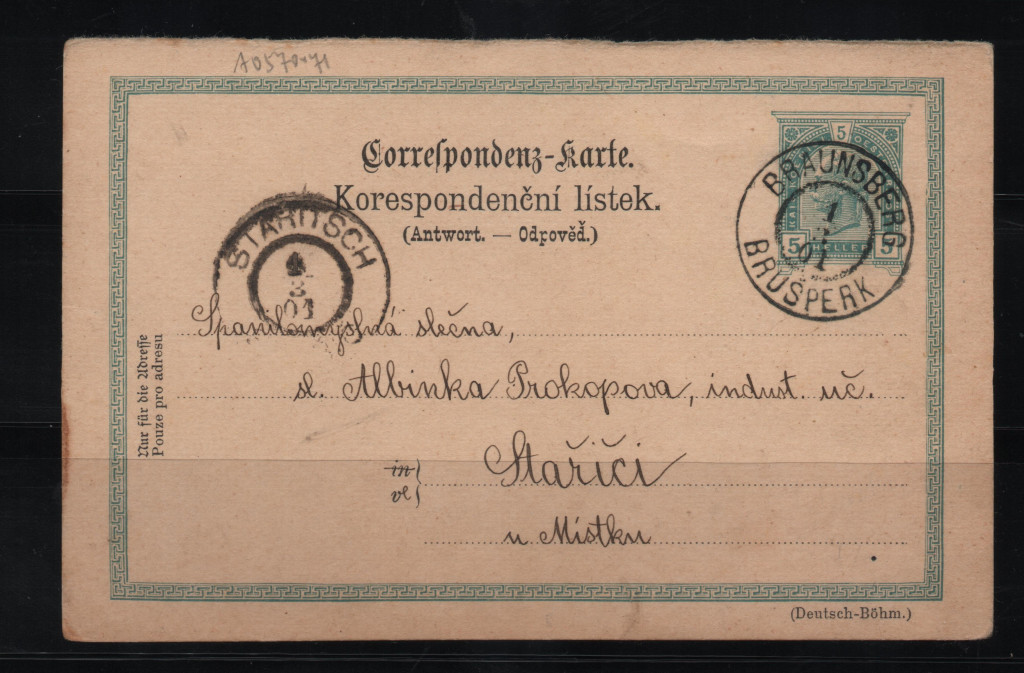 A0570-71
Correſpondenz-Karte.
Korespondenční lístek.
(Antwort. — Odpověď.)
5
5 HELLER 5
BRAUNSBERG
1
01
BRUŠPERK
STARITSCH
3
01
Spanilomyslná slečna,
sl. Albinka Prokopova, indust. uč.
in
ve
Stařiči
u Místku
Nur für die Adreſſe
Pouze pro adresu
(Deutsch-Böhm.)